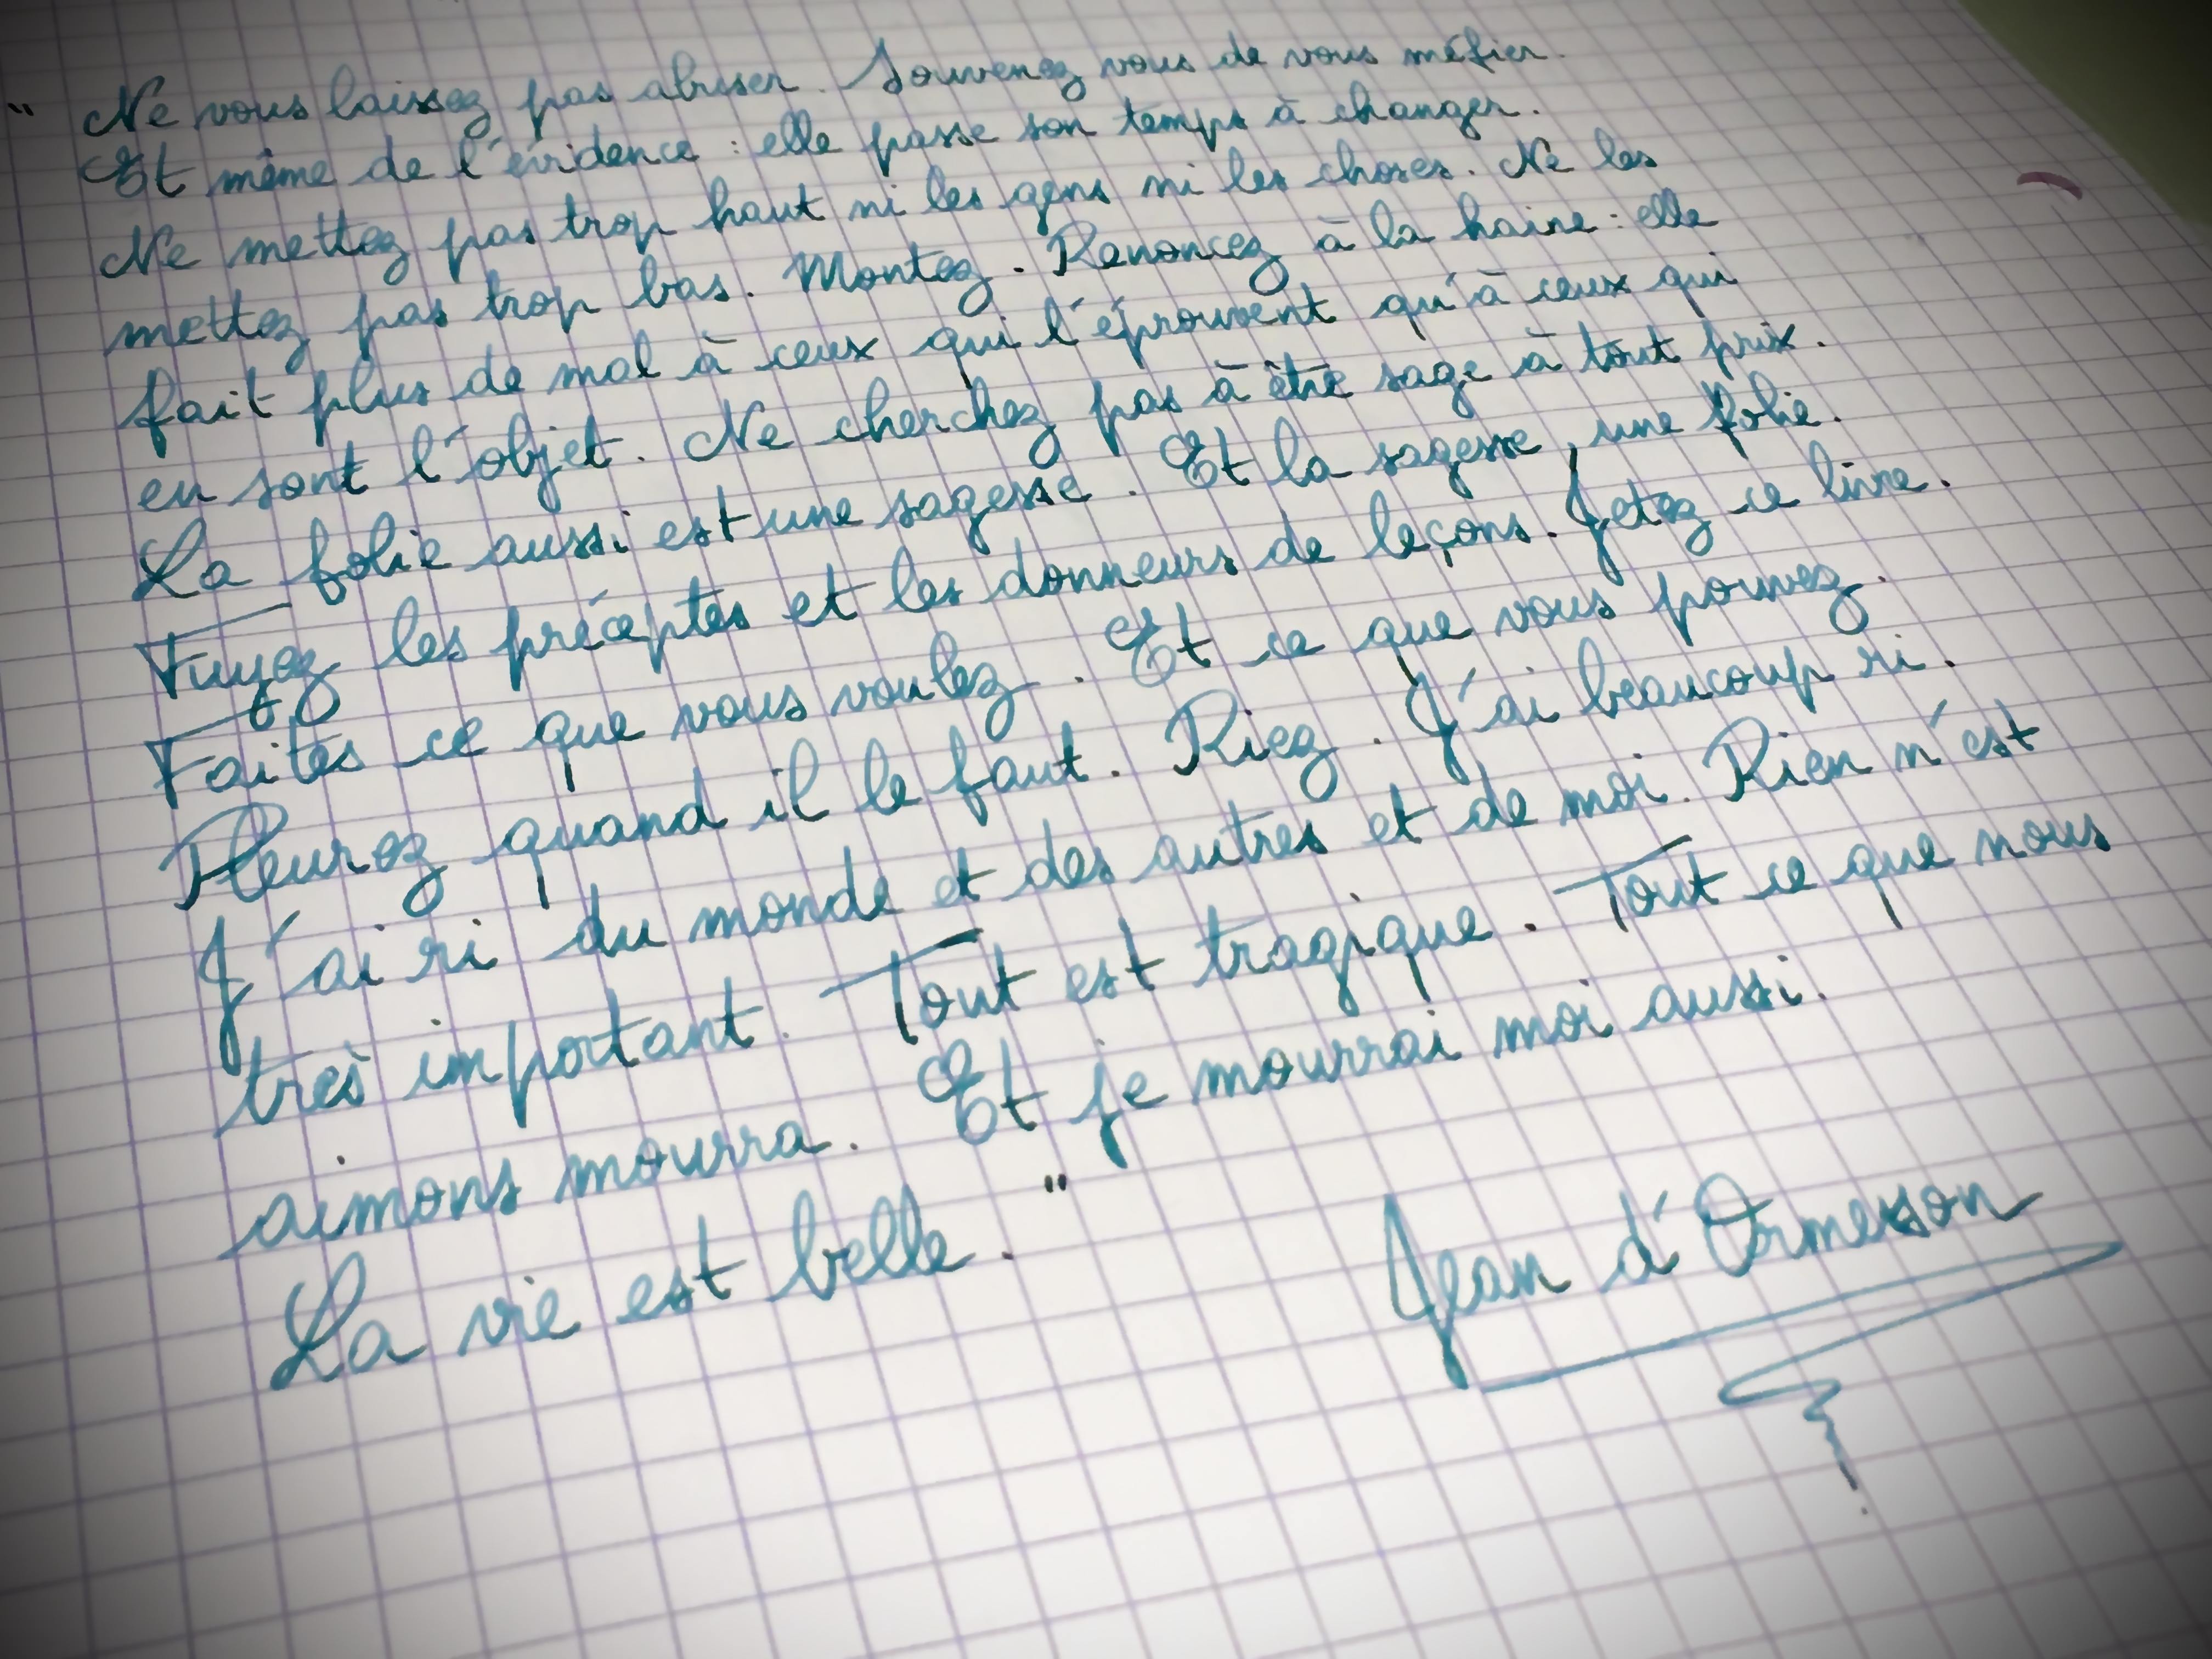 " Ne vous laissez pas abuser. Souvenez vous de vous méfier.
Et même de l'évidence : elle passe son temps à changer.
Ne mettez pas trop haut ni les gens ni les choses. Ne les
mettez pas trop bas. Montez. Renoncez à la haine : elle
fait plus de mal à ceux qui l'éprouvent qu'à ceux qui
en sont l'objet. Ne cherchez pas à être sage à tout prix.
La folie aussi est une sagesse. Et la sagesse, une folie.
Fuyez les préceptes et les donneurs de leçons. Jetez ce livre.
Faites ce que vous voulez. Et ce que vous pouvez.
Pleurez quand il le faut. Riez. J'ai beaucoup ri.
J'ai ri du monde et des autres et de moi. Rien n'est
très important. Tout est tragique. Tout ce que nous
aimons mourra. Et je mourrai moi aussi.
La vie est belle. "
Jean d'Ormesson